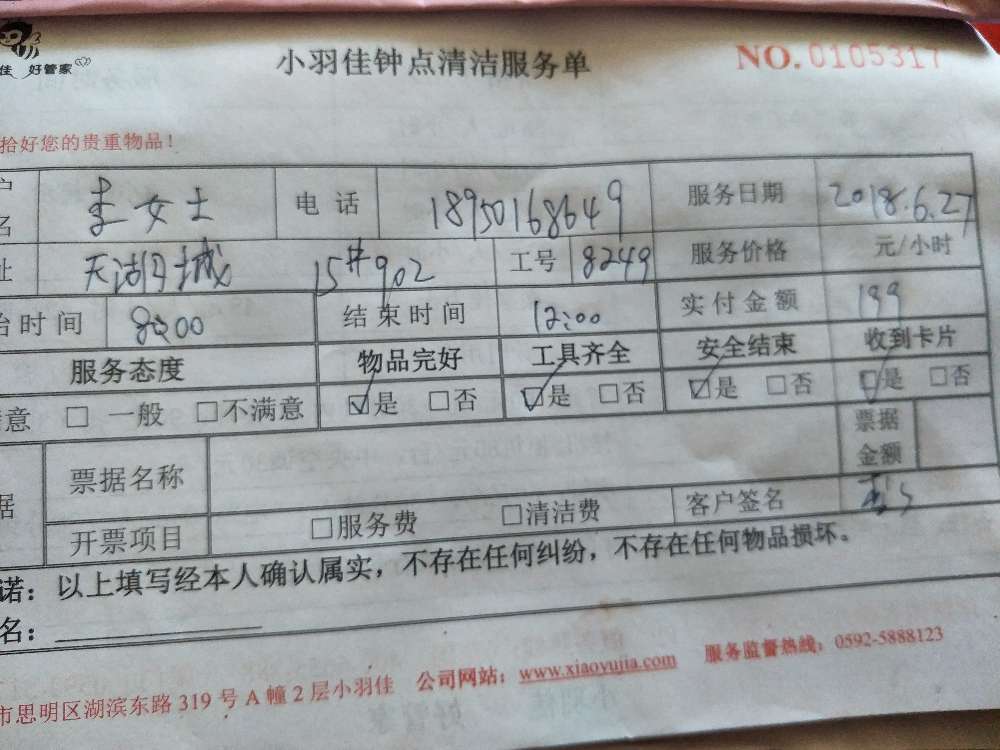 佳 好管家
小羽佳钟点清洁服务单
NO. 0105317
拾好您的贵重物品！
户名 李女士 电话 18950168649 服务日期 2018.6.27
址 天湖城 15#902 工号 8249 服务价格 元/小时
始时间 8:00 结束时间 12:00 实付金额 199
服务态度 物品完好 工具齐全 安全结束 收到卡片
意 □ 一般 □不满意 ☑是 □否 ☑是 □否 ☑是 □否 ☑是 □否
据 票据名称 票据金额
开票项目 □服务费 □清洁费 客户签名
诺：以上填写经本人确认属实，不存在任何纠纷，不存在任何物品损坏。
名：
市思明区湖滨东路319号A幢2层小羽佳 公司网站：www.xiaoyujia.com 服务监督热线：0592-5888123